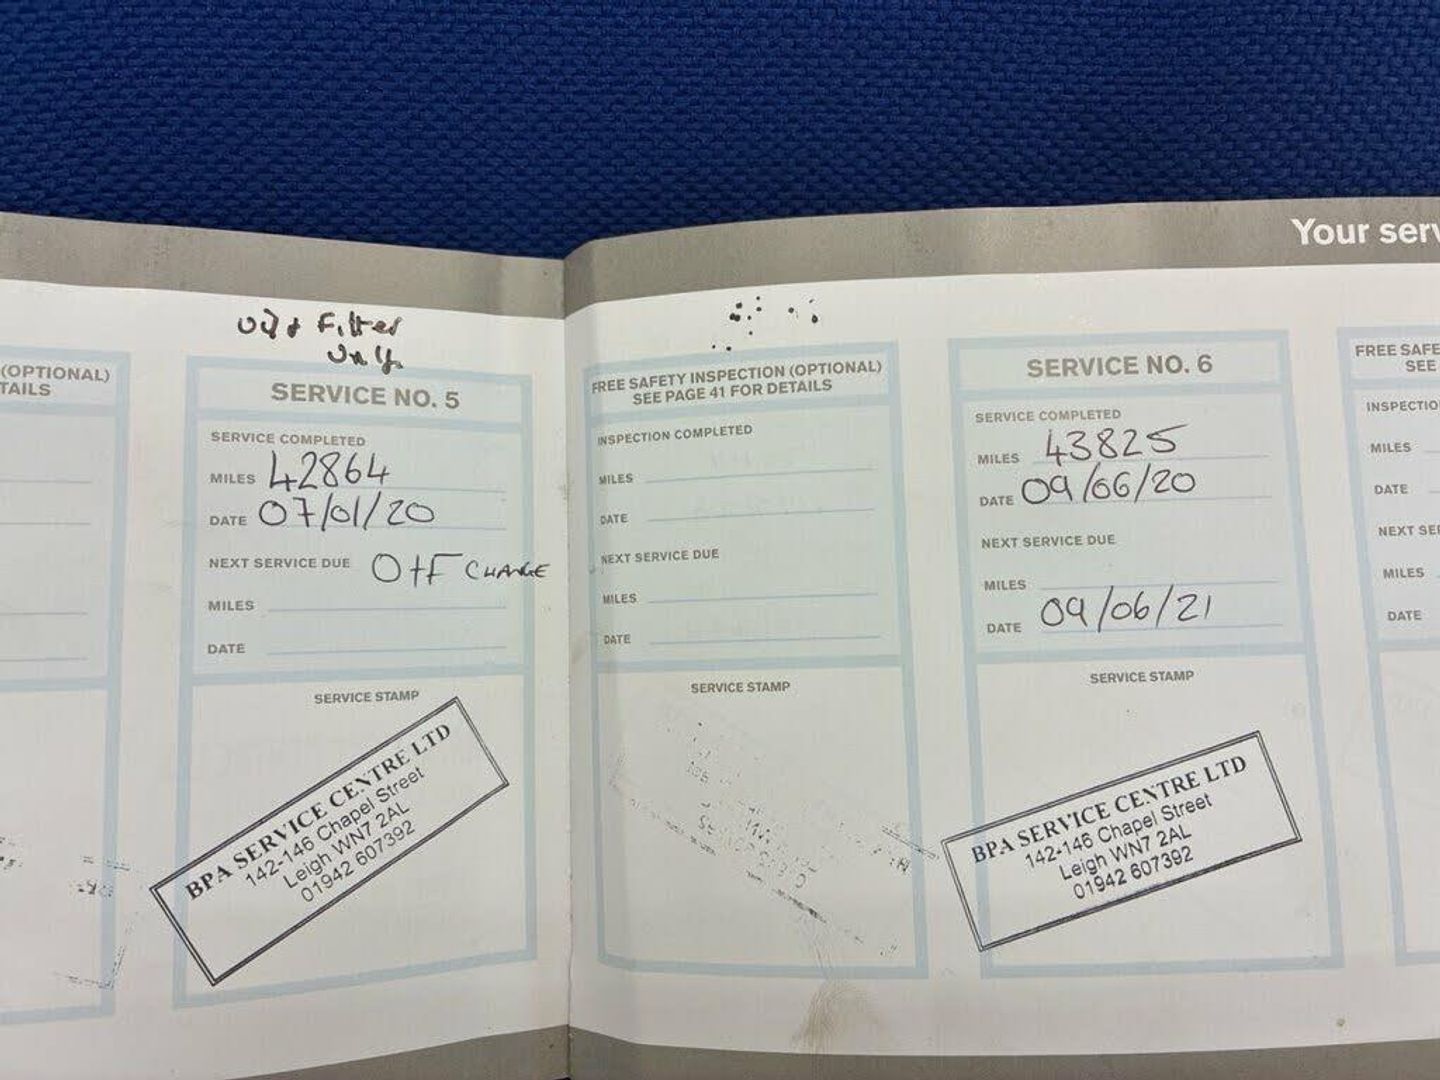 Your serv
(OPTIONAL)
TAILS
Oil + Filter
Only
SERVICE NO. 5
SERVICE COMPLETED
MILES 42864
DATE 07/01/20
NEXT SERVICE DUE O+F CHANGE
MILES
DATE
SERVICE STAMP
BPA SERVICE CENTRE LTD
142-146 Chapel Street
Leigh WN7 2AL
01942 607392
FREE SAFETY INSPECTION (OPTIONAL)
SEE PAGE 41 FOR DETAILS
INSPECTION COMPLETED
MILES
DATE
NEXT SERVICE DUE
MILES
DATE
SERVICE STAMP
SERVICE NO. 6
SERVICE COMPLETED
MILES 43825
DATE 09/06/20
NEXT SERVICE DUE
MILES
DATE 09/06/21
SERVICE STAMP
BPA SERVICE CENTRE LTD
142-146 Chapel Street
Leigh WN7 2AL
01942 607392
FREE SAFE
SEE
INSPECTIO
MILES
DATE
NEXT SE
MILES
DATE